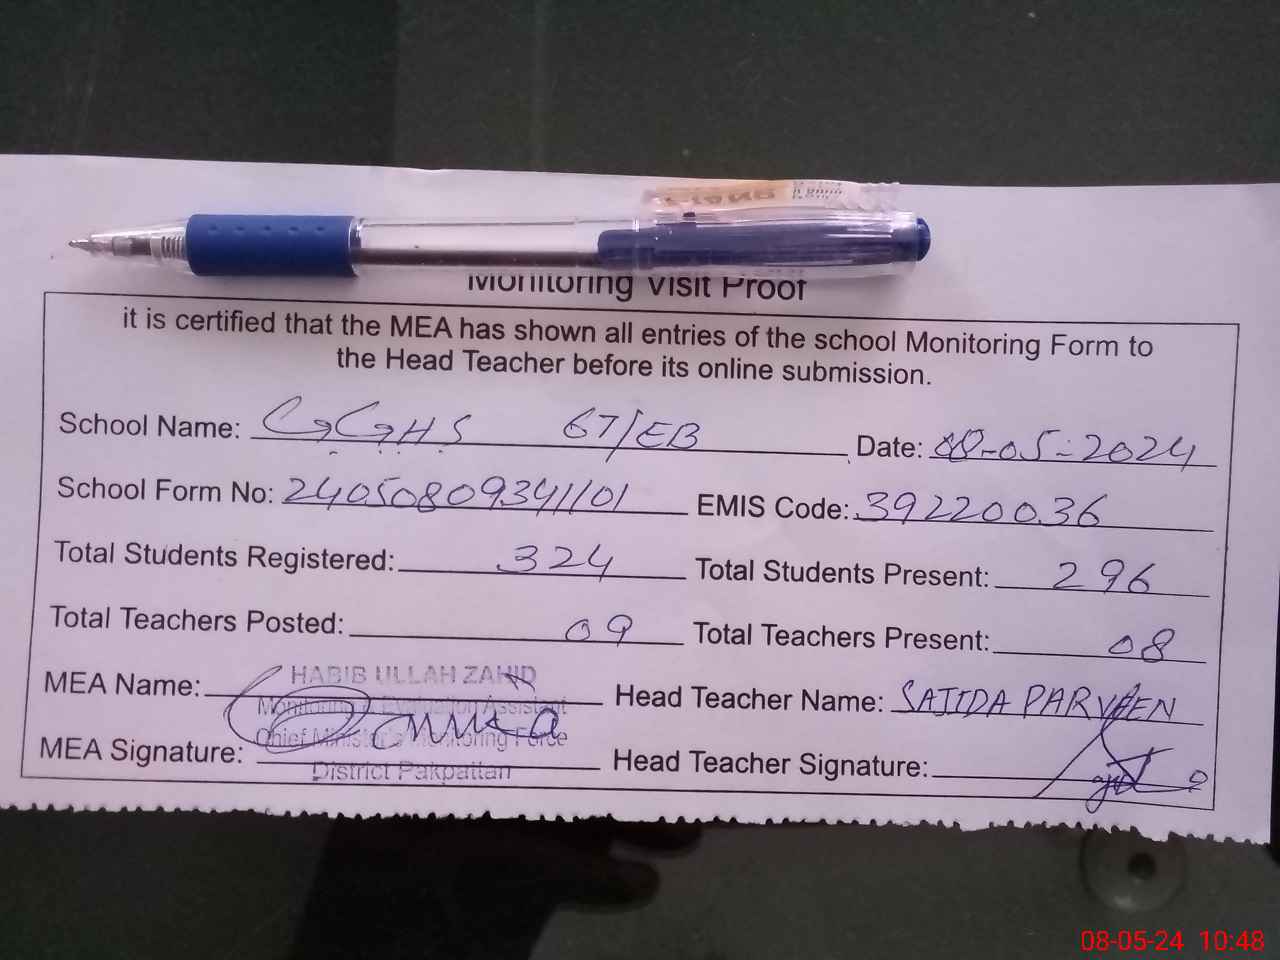 Monitoring Visit Proof
it is certified that the MEA has shown all entries of the school Monitoring Form to
the Head Teacher before its online submission.
School Name: GGHS 67/EB Date: 08-05-2024
School Form No: 24050809341101 EMIS Code: 39220036
Total Students Registered: 324 Total Students Present: 296
Total Teachers Posted: 09 Total Teachers Present: 08
MEA Name: HABIB ULLAH ZAHID Head Teacher Name: SAJIDA PARVEEN
Monitoring & Evaluation Assistant
Chief Minister's Monitoring Force
MEA Signature: Head Teacher Signature:
District Pakpattan
08-05-24 10:48